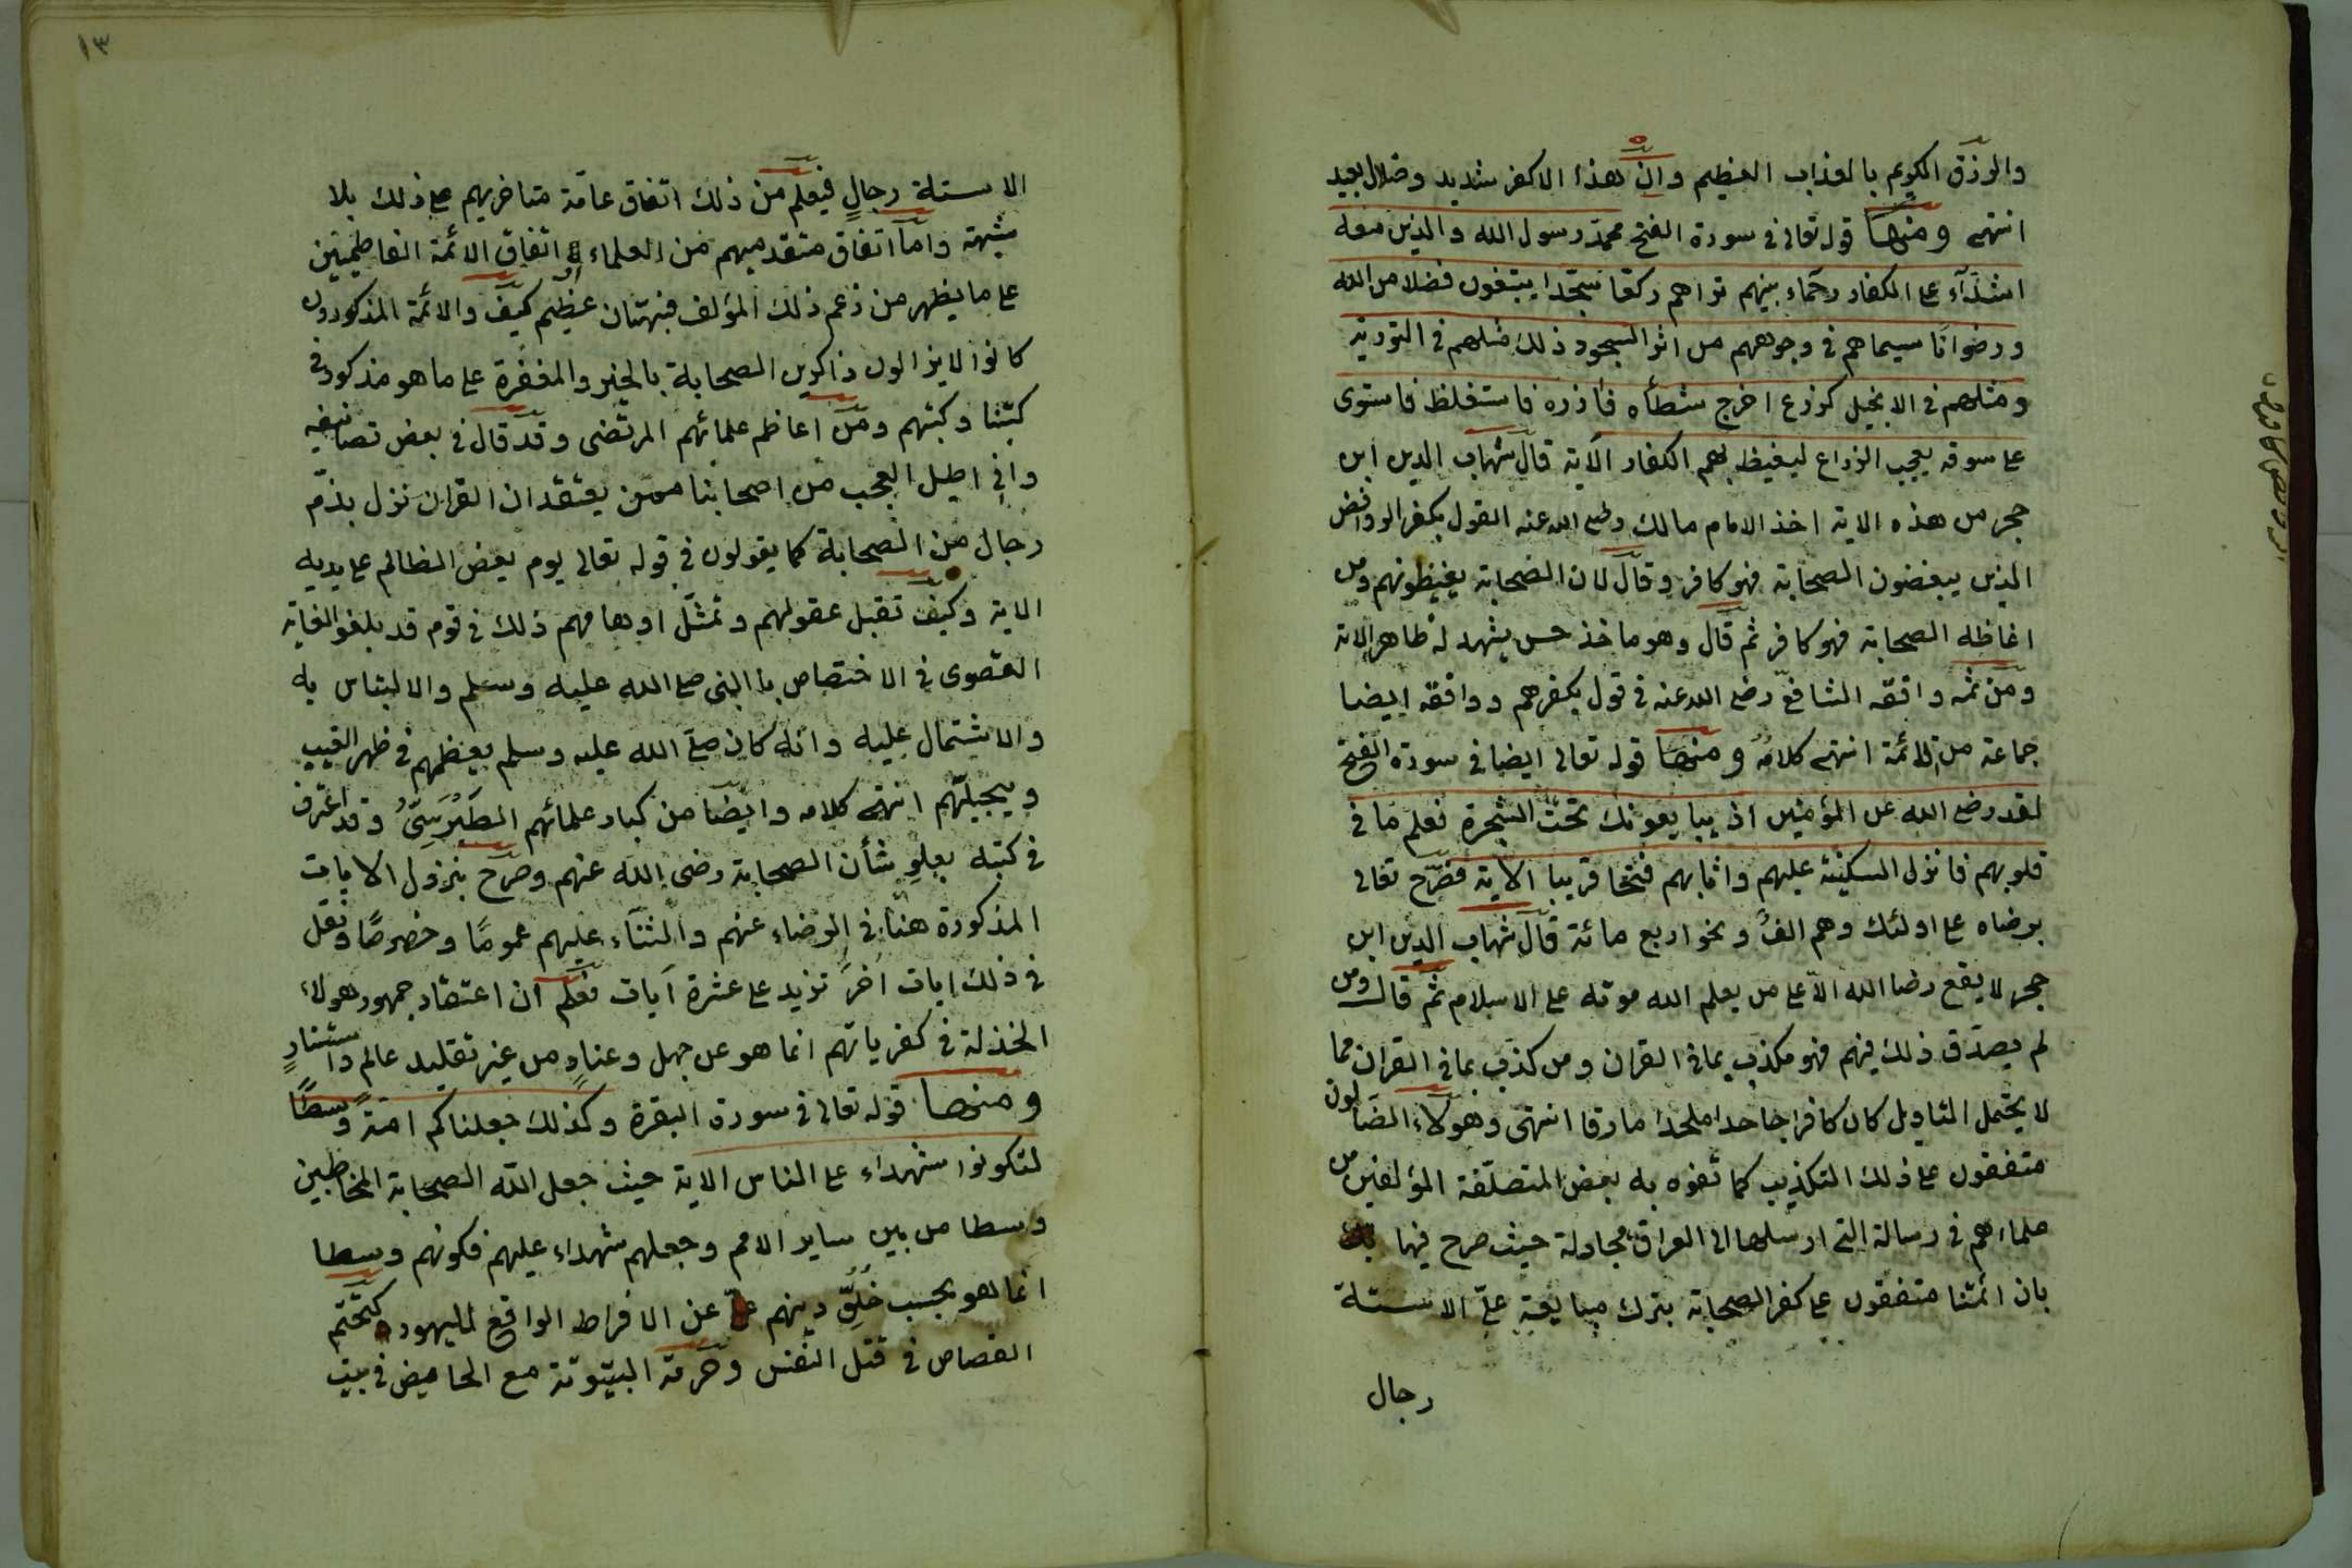 والرزق الكريم بالعذاب العظيم وان هذا الا كفر شديد وضلال بعيد
انتهى ومنها قوله تعالى في سورة الفتح محمد رسول الله والذين معه
اشدآء على الكفار رحماء بينهم تراهم ركعا سجدا يبتغون فضلا من الله
ورضوانا سيماهم في وجوههم من اثر السجود ذلك مثلهم في التورية
ومثلهم في الانجيل كزرع اخرج شطأه فأزره فاستغلظ فاستوى
على سوقه يعجب الزراع ليغيظ بهم الكفار الآية قال شهاب الدين ابن
حجر من هذه الاية اخذ الامام مالك رضى الله عنه القول بكفر الروافض
الذين يبغضون الصحابة فهو كافر وقال لان الصحابة يغيظونهم ومن
اغاظه الصحابة فهو كافر ثم قال وهو ماخذ حسن يشهد له ظاهر الاية
ومن ثمه وافقه الشافعي رضى الله عنه في قول بكفرهم ووافقه ايضا
جماعة من الائمة انتهى كلامه ومنها قوله تعالى ايضا في سورة الفتح
لقد رضى الله عن المؤمنين اذ يبايعونك تحت الشجرة فعلم ما في
قلوبهم فانزل السكينة عليهم واثابهم فتحا قريبا الآية فصرّح تعالى
برضاه على اولئك وهم الف ونحو اربع مائة قال شهاب الدين ابن
حجر لا يقع رضا الله الّا على من يعلم الله موته على الاسلام ثم قال ومن
لم يصدّق ذلك فيهم فهو مكذب بما في القران ومن كذب بما في القران مما
لا يحتمل التاويل كان كافرا جاحدا ملحدا مارقا انتهى وهولاء الضالون
متفقون على ذلك التكذيب كما تفوه به بعض المتصلّفة المؤلفين من
علماءهم في رسالة التى ارسلها الى العراق مجادلة حيث صرح فيها
بان ائمتنا متفقون على كفر الصحابة بترك مبايعة علىّ الا ستة
رجال
١٣
الا ستة رجالٍ فيعلم من ذلك اتفاق عامّة متاخريهم على ذلك بلا
شبهة وامّا اتفاق متقدميهم من العلماء او اتفاق الائمة الفاطميين
على ما يظهر من زعم ذلك المؤلف فبهتان عظيم كيف والائمة المذكورون
كانوا لا يزالون ذاكرين الصحابة بالخير والمغفرة على ما هو مذكور في
كتبنا وكتبهم ومن اعاظم علمائهم المرتضى وقد قال في بعض تصانيفه
وانى اطيل العجب من اصحابنا ممن يعتقد ان القران نزل بذمّ
رجال من الصحابة كما يقولون في قوله تعالى يوم يعض الظالم على يديه
الاية وكيف تقبل عقولهم وتمثّل اوهامهم ذلك في قوم قد بلغوا الغاية
القصوى في الاختصاص بالنبى صلى الله عليه وسلم والالتباس به
والاشتمال عليه وانه كان صلى الله عليه وسلم يعظمهم في ظهر الغيب
ويبجّلهم انتهى كلامه وايضا من كبار علمائهم الطبرسىّ وقد اعترف
في كتبه بعلو شأن الصحابة رضى الله عنهم وصرح بنزول الايات
المذكورة هنا في الرضاء عنهم والثناء عليهم عموما وخصوصا ونقل
في ذلك ايات اخر تزيد على عشرة آيات فعلم ان اعتقاد جمهور هولاء
الخذلة في كفرياتهم انما هو عن جهل وعنادٍ من غير تقليد عالم واستنادٍ
ومنها قوله تعالى في سورة البقرة وكذلك جعلناكم امّة وسطًا
لتكونوا شهداء على الناس الاية حيث جعل الله الصحابة المخاطبين
وسطا من بين ساير الامم وجعلهم شهداء عليهم فكونهم وسطا
انما هو بحسب خلوّ دينهم عن الافراط الواقع لليهود كتحتّم
القصاص في قتل النفس وحرمة البيتوتة مع الحايض في بيت